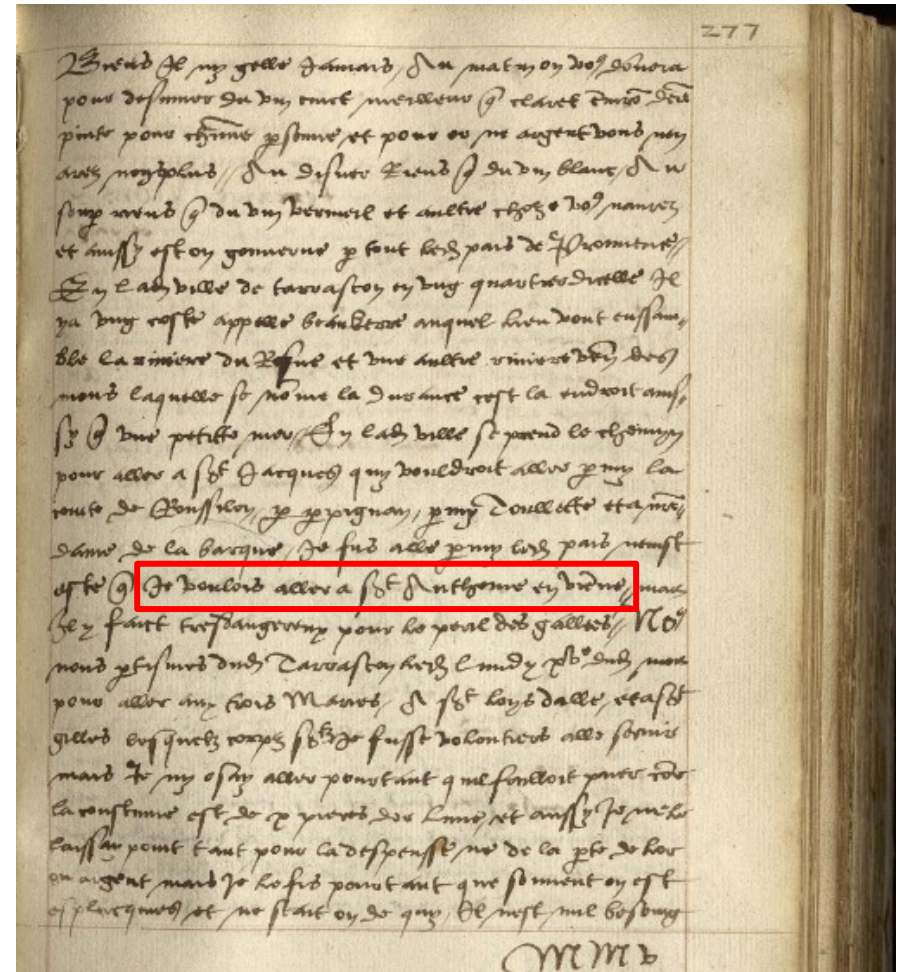 277
Riens Il ny gelle Jamais / Au matin on vo9 donera
pour desiuner du vin cuict meilleur q̃ claret
pinte pour chune psonne et pour or ne argent vous nen
arez nonplus // Au disner Riens q̃ du vin blanc / Au
soup riens q̃ du vin vermeil et aultre chose vo9 naurez
et aussy est on gouverne p tout led pais de Prouvence //
En lad ville de tarrascon en ung quartier dicelle Il
ya ung coste appelle beaukerre auquel lieu vont enssam-
ble la riviere du Rosne et une aultre riviere ven des
mons laquelle se nōme la durance cest la endroit aus-
sy q̃ une petitte mer // En lad ville se prend le chemyn
pour aller a sct Jacques quy vouldroit aller pmy la
conte de Roussillon, p ppignan, pmy Toullette et a nre
dame de la barque / Je fus alle pmy led pais neust
este q̃ Je voulois aller a sct Anthoine en viēne / mais
Il y faict tresdangereux pour le peril des gallees // No9
nous ptismes dud Tarrascon led lundy xvo dud mois
pour aller aux trois Maries / A sct loys dalle, et a sct
gilles lesquelz corps sctz Je fusse volontiers alle servir
mais Je ny osay aller pourtant quil failloit paier
la constume est de x pieces dor lune, et aussy Je ne le
laissay point tant pour la despensse ne de la pte de lor
ou argent mais Je le fis pourtant que souvent on est
et ne scait on de quy / Il nest nul besoing